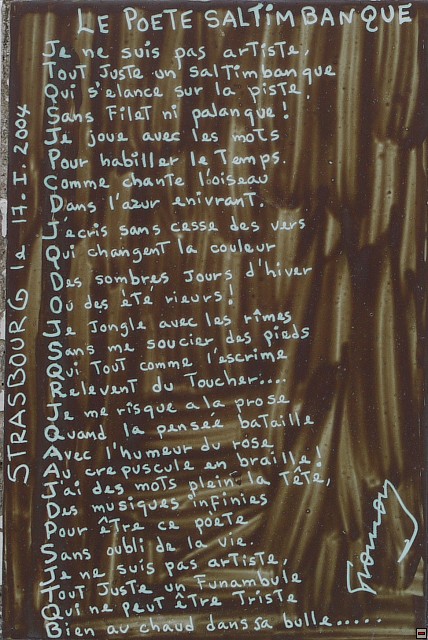 LE POETE SALTIMBANQUE
Je ne suis pas artiste,
Tout juste un saltimbanque
Qui s'elance sur la piste
Sans filet ni palanque!
Je joue avec les mots
Pour habiller le Temps.
Comme chante l'oiseau
Dans l'azur enivrant.
J'écris sans cesse des vers
Qui changent la couleur
Des sombres jours d'hiver
Ou des été rieurs!
Je jongle avec les rîmes
Sans me soucier des pieds
Qui Tout comme l'escrime
Relevent du Toucher....
Je me risque a la prose
Quand la pensée bataille
Avec l'humeur du rose
Au crepuscule en braille!
J'ai des mots plein la Tête,
Des musiques infinies
Pour être ce poète
Sans oubli de la vie.
Je ne suis pas artiste,
Tout juste un Funambule
Qui ne peut être Triste
Bien au chaud dans sa bulle.....
STRASBOURG le 17.I.2004